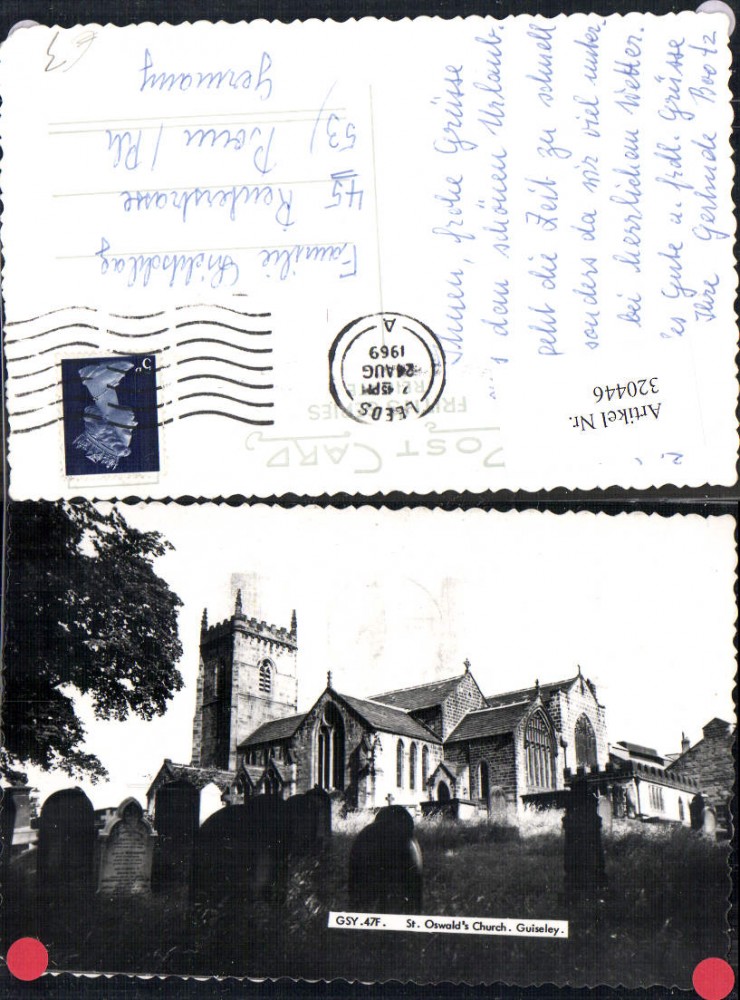 POST CARD
FRIENDS SERIES
LEEDS
24 AUG
1969
A
5D
Artikel Nr.
320446
Familie
45 Reuterstrasse
53 / Bonn / Rh
Germany
Ihnen, frohe Grüsse
schönen Urlaub.
geht die Zeit zu schnell
sonders da wir viel unter
bei herrlichem Wetter.
es Gute u. frdl. Grüsse
Ihre Gertrude Bootz
GSY.47F. St. Oswald's Church. Guiseley.